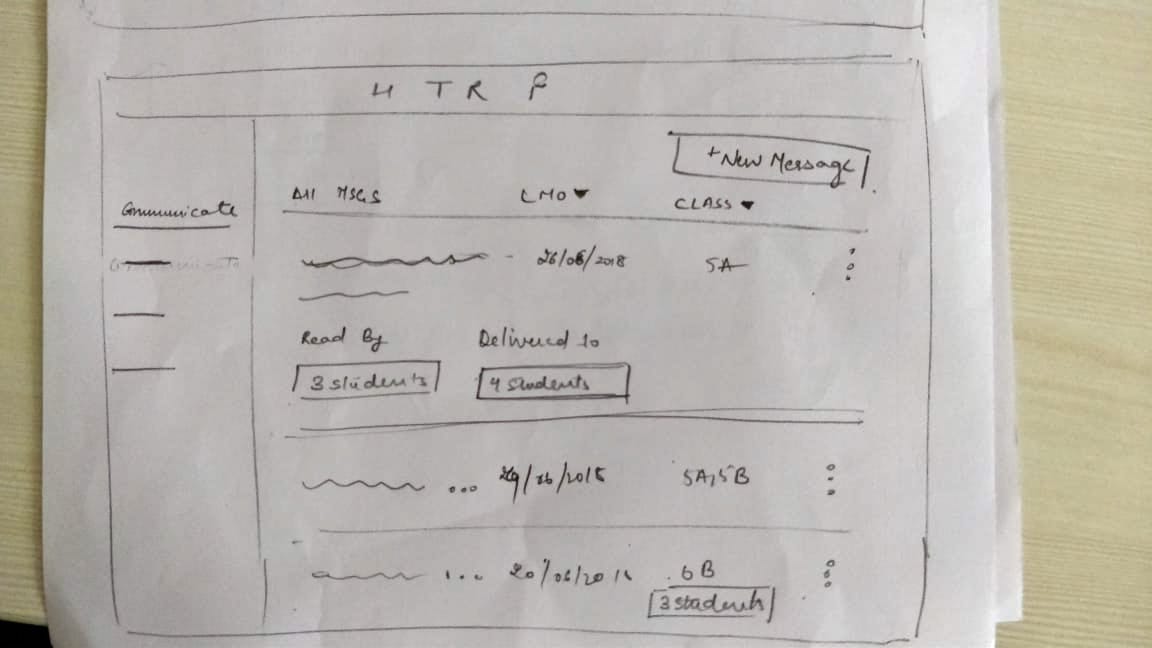 H T R F
+ New Message
Communicate
All MSGS LMO ▼ CLASS ▼
26/06/2018 5A
Read By Delivered to
3 students 4 students
... 29/06/2018 5A,5B
... 20/06/2018 6B
3 students